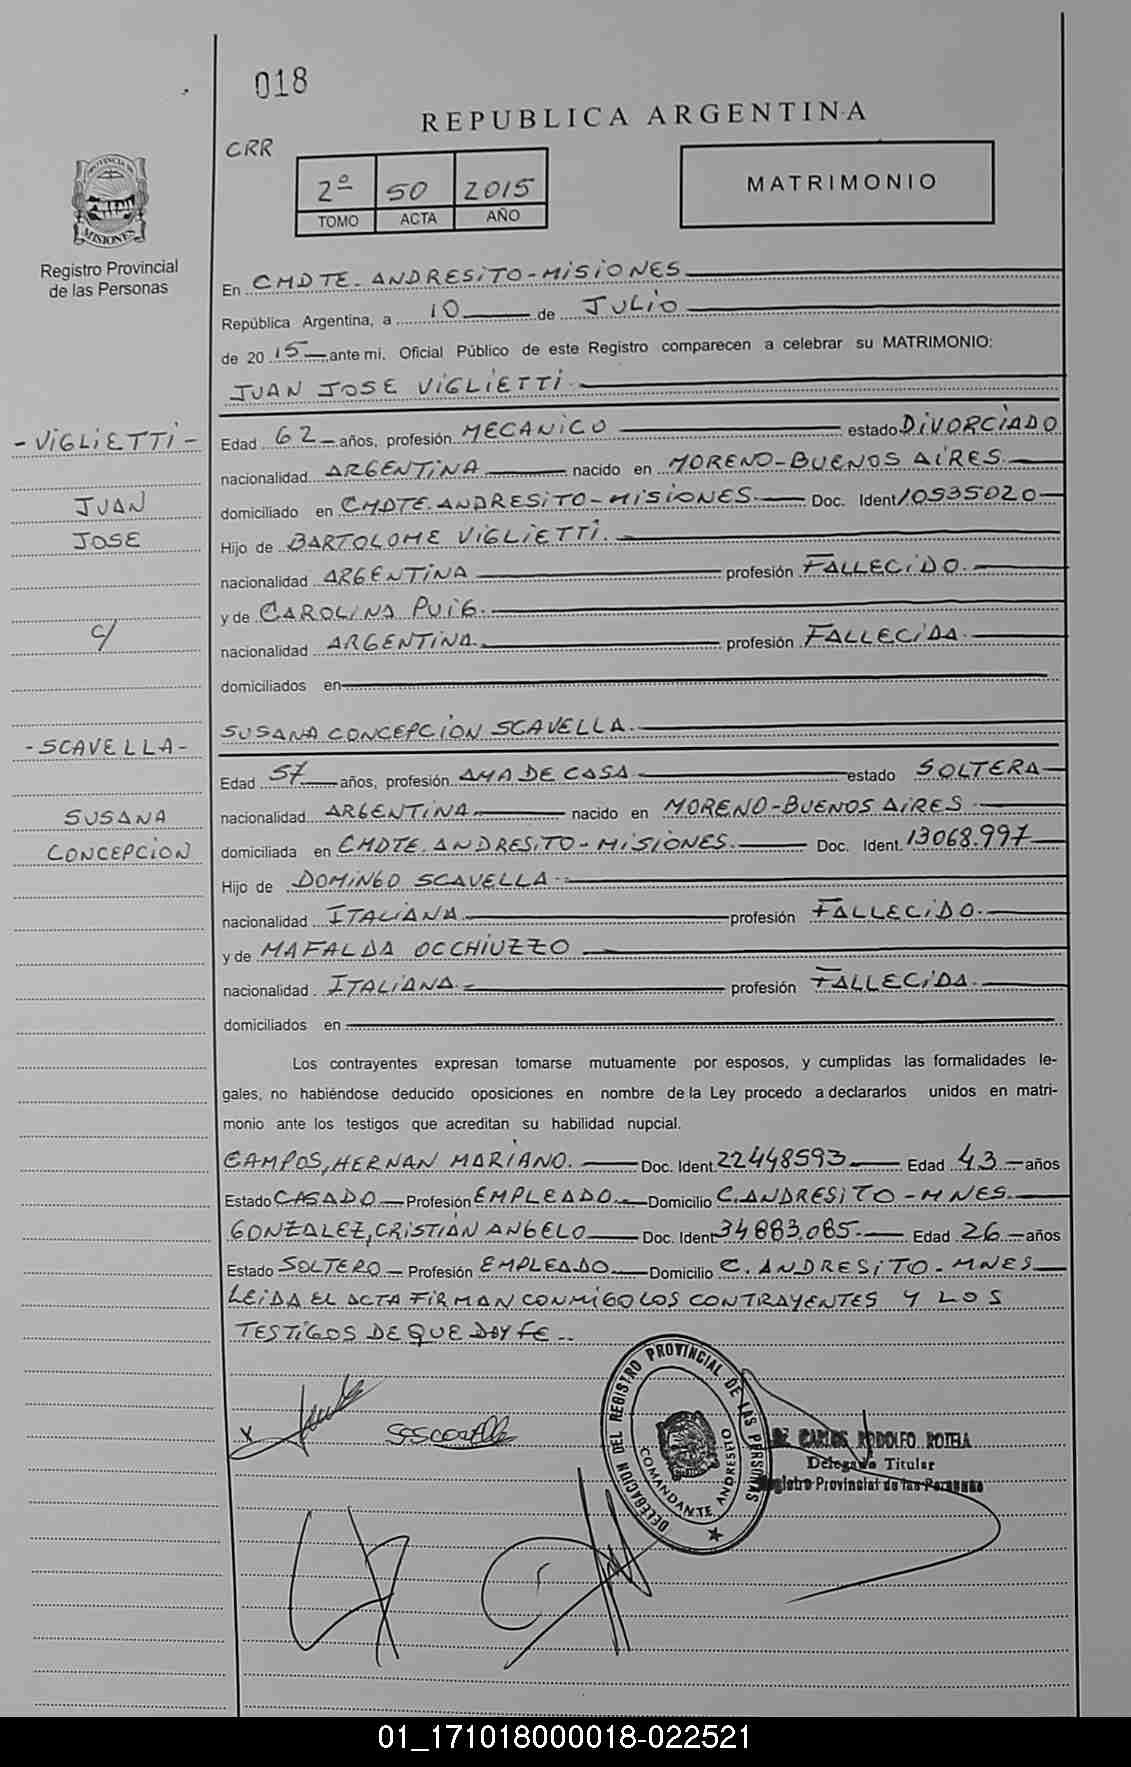 018
REPUBLICA ARGENTINA
CRR
2º 50 2015
TOMO ACTA AÑO
MATRIMONIO
PROVINCIA DE
MISIONES
Registro Provincial
de las Personas
En CMDTE. ANDRESITO-MISIONES
República Argentina, a 10 de JULIO
de 2015 ante mi. Oficial Público de este Registro comparecen a celebrar su MATRIMONIO:
JUAN JOSE VIGLIETTI.
- VIGLIETTI -
JUAN
JOSE
c/
Edad 62 años, profesión MECANICO estado DIVORCIADO
nacionalidad ARGENTINA nacido en MORENO-BUENOS AIRES.
domiciliado en CMDTE. ANDRESITO-MISIONES. Doc. Ident 10535020
Hijo de BARTOLOME VIGLIETTI.
nacionalidad ARGENTINA profesión FALLECIDO.
y de CAROLINA PUIG.
nacionalidad ARGENTINA. profesión FALLECIDA.
domiciliados en
SUSANA CONCEPCION SCAVELLA.
- SCAVELLA -
SUSANA
CONCEPCION
Edad 57 años, profesión AMA DE CASA estado SOLTERA
nacionalidad ARGENTINA. nacido en MORENO-BUENOS AIRES.
domiciliada en CMDTE. ANDRESITO-MISIONES. Doc. Ident. 13068.997
Hijo de DOMINGO SCAVELLA.
nacionalidad ITALIANA. profesión FALLECIDO.
y de MAFALDA OCCHIUZZO
nacionalidad ITALIANA. profesión FALLECIDA.
domiciliados en
Los contrayentes expresan tomarse mutuamente por esposos, y cumplidas las formalidades le-
gales, no habiéndose deducido oposiciones en nombre de la Ley procedo a declararlos unidos en matri-
monio ante los testigos que acreditan su habilidad nupcial.
CAMPOS, HERNAN MARIANO. Doc. Ident. 22448593 Edad 43 años
Estado CASADO Profesión EMPLEADO. Domicilio C. ANDRESITO-MNES.
GONZALEZ, CRISTIAN ANGELO Doc. Ident 34883.085. Edad 26 años
Estado SOLTERO Profesión EMPLEADO Domicilio C. ANDRESITO-MNES
LEIDA EL ACTA FIRMAN CONMIGO LOS CONTRAYENTES Y LOS
TESTIGOS DE QUE DOY FE..
DELEGACION DEL REGISTRO PROVINCIAL DE LAS PERSONAS
COMANDANTE ANDRESITO
X
CARLOS RODOLFO ROTELA
Delegado Titular
Registro Provincial de las Personas
01_171018000018-022521